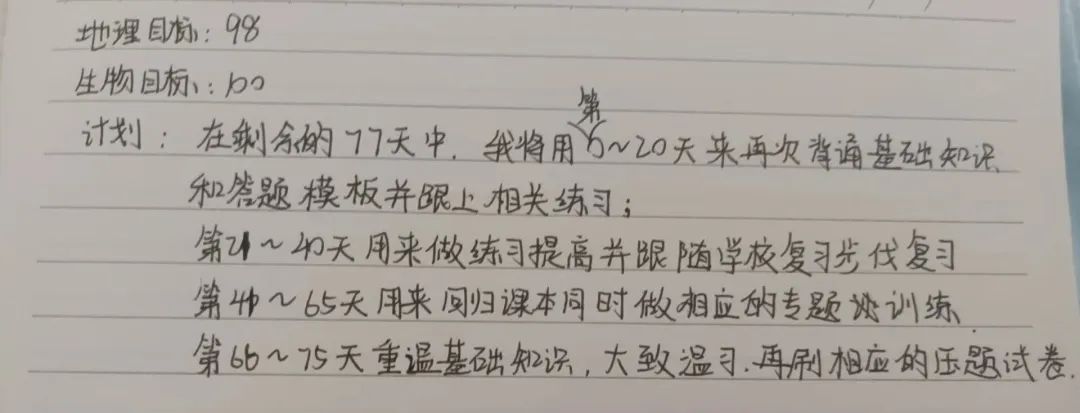 地理目标：98
生物目标：100
计划：在剩余的77天中，我将用第0～20天来再次背诵基础知识
和答题模板并跟上相关练习；
第21～40天用来做练习提高并跟随学校复习步伐复习
第41～65天用来回归课本同时做相应的专题训练
第66～75天重温基础知识，大致温习.再刷相应的压题试卷.